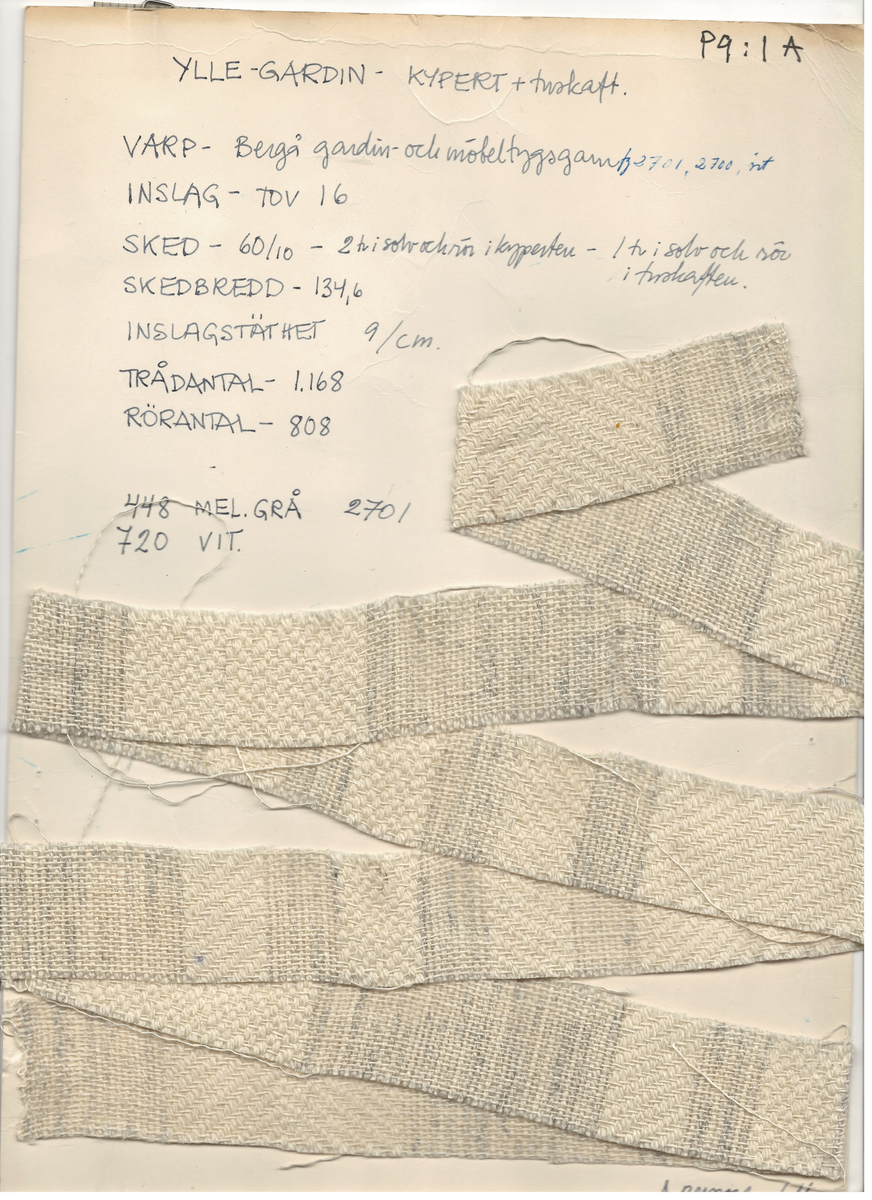 P9:1A
YLLE-GARDIN - KYPERT + tuskaft.
VARP - Bergå gardin- och möbeltygsgarn fg 2701, 2700, vit
INSLAG - TOV 16
SKED - 60/10 - 2 tr i solv och rör i kyperten - 1 tr i solv och rör
i tuskaften.
SKEDBREDD - 134,6
INSLAGSTÄTHET 9/cm.
TRÅDANTAL - 1.168
RÖRANTAL - 808
448 MEL.GRÅ 2701
720 VIT.